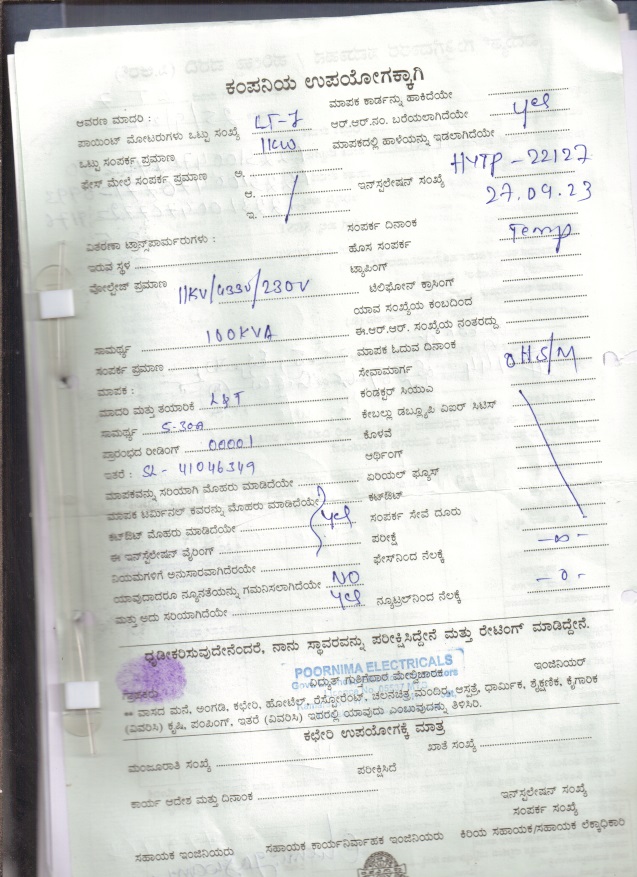 ಕಂಪನಿಯ ಉಪಯೋಗಕ್ಕಾಗಿ
ಆವರಣ ಮಾದರಿ :
ಪಾಯಿಂಟ್ ಮೋಟರುಗಳು ಒಟ್ಟು ಸಂಖ್ಯೆ LT-7
ಒಟ್ಟು ಸಂಪರ್ಕ ಪ್ರಮಾಣ 11KW
ಫೇಸ್ ಮೇಲೆ ಸಂಪರ್ಕ ಪ್ರಮಾಣ ಅ.
ಆ.
ಇ.
ವಿತರಣಾ ಟ್ರಾನ್ಸ್‌ಪಾರ್ಮರುಗಳು :
ಇರುವ ಸ್ಥಳ
ವೋಲ್ಟೇಜ್ ಪ್ರಮಾಣ 11KV/433V/230V
ಸಾಮರ್ಥ್ಯ 100KVA
ಸಂಪರ್ಕ ಪ್ರಮಾಣ
ಮಾಪಕ :
ಮಾದರಿ ಮತ್ತು ತಯಾರಿಕೆ L&T
ಸಾಮರ್ಥ್ಯ 5-30A
ಪ್ರಾರಂಭದ ರೀಡಿಂಗ್ 00001
ಇತರೆ : SL - 41046349
ಮಾಪಕವನ್ನು ಸರಿಯಾಗಿ ಮೊಹರು ಮಾಡಿದೆಯೇ
ಮಾಪಕ ಟರ್ಮಿನಲ್ ಕವರನ್ನು ಮೊಹರು ಮಾಡಿದೆಯೇ
ಕಟ್‌ಔಟ್ ಮೊಹರು ಮಾಡಿದೆಯೇ yes
ಈ ಇನ್‌ಸ್ಟಲೇಷನ್ ವೈರಿಂಗ್
ನಿಯಮಗಳಿಗೆ ಅನುಸಾರವಾಗಿದೆರಯೇ
ಯಾವುದಾದರೂ ನ್ಯೂನತೆಯನ್ನು ಗಮನಿಸಲಾಗಿದೆಯೇ NO
ಮತ್ತು ಅದು ಸರಿಯಾಗಿದೆಯೇ yes
ಮಾಪಕ ಕಾರ್ಡನ್ನು ಹಾಕಿದೆಯೇ
ಆರ್.ಆರ್.ನಂ. ಬರೆಯಲಾಗಿದೆಯೇ yes
ಮಾಪಕದಲ್ಲಿ ಹಾಳೆಯನ್ನು ಇಡಲಾಗಿದೆಯೇ
ಇನ್‌ಸ್ಟಲೇಷನ್ ಸಂಖ್ಯೆ HYTP - 22127
27.09.23
ಸಂಪರ್ಕ ದಿನಾಂಕ
ಹೊಸ ಸಂಪರ್ಕ Temp
ಟ್ಯಾಪಿಂಗ್
ಟೆಲಿಫೋನ್ ಕ್ರಾಸಿಂಗ್
ಯಾವ ಸಂಖ್ಯೆಯ ಕಂಬದಿಂದ
ಈ.ಆರ್.ಆರ್. ಸಂಖ್ಯೆಯ ನಂತರದ್ದು
ಮಾಪಕ ಓದುವ ದಿನಾಂಕ
ಸೇವಾಮಾರ್ಗ OHS/M
ಕಂಡಕ್ಟರ್ ಸಿಯುವಿ
ಕೇಬಲ್ಲು ಡಬ್ಲ್ಯೂಪಿ ವಿಐರ್ ಸಿಟಿಸ್
ಕೊಳವೆ
ಆರ್ಥಿಂಗ್
ಏರಿಯಲ್ ಫ್ಯೂಸ್
ಕಟ್‌ಔಟ್
ಸಂಪರ್ಕ ಸೇವೆ ದೂರು
ಪರೀಕ್ಷೆ
ಫೇಸ್‌ನಿಂದ ನೆಲಕ್ಕೆ -∞-
ನ್ಯೂಟ್ರಲ್‌ನಿಂದ ನೆಲಕ್ಕೆ -0-
ಧೃಡೀಕರಿಸುವುದೇನೆಂದರೆ, ನಾನು ಸ್ಥಾವರವನ್ನು ಪರೀಕ್ಷಿಸಿದ್ದೇನೆ ಮತ್ತು ರೇಟಿಂಗ್ ಮಾಡಿದ್ದೇನೆ.
POORNIMA ELECTRICALS
ವಿದ್ಯುತ್ ಗುತ್ತಿಗೆದಾರ ಮೇಲ್ವಿಚಾರಕ
ಇಂಜಿನಿಯರ್
** ವಾಸದ ಮನೆ, ಅಂಗಡಿ, ಕಛೇರಿ, ಹೋಟೆಲ್, ರೆಸ್ಟೋರೆಂಟ್, ಚಲನಚಿತ್ರ ಮಂದಿರ, ಆಸ್ಪತ್ರೆ, ಧಾರ್ಮಿಕ, ಶೈಕ್ಷಣಿಕ, ಕೈಗಾರಿಕ
(ವಿವರಿಸಿ) ಕೃಷಿ, ಪಂಪಿಂಗ್, ಇತರೆ (ವಿವರಿಸಿ) ಇದರಲ್ಲಿ ಯಾವುದು ಎಂಬುವುದನ್ನು ತಿಳಿಸಿರಿ.
ಕಛೇರಿ ಉಪಯೋಗಕ್ಕೆ ಮಾತ್ರ
ಮಂಜೂರಾತಿ ಸಂಖ್ಯೆ ಖಾತೆ ಸಂಖ್ಯೆ
ಪರೀಕ್ಷಿಸಿದೆ
ಕಾರ್ಯ ಆದೇಶ ಮತ್ತು ದಿನಾಂಕ
ಇನ್‌ಸ್ಟಲೇಷನ್ ಸಂಖ್ಯೆ
ಸಂಪರ್ಕ ಸಂಖ್ಯೆ
ಸಹಾಯಕ ಇಂಜಿನಿಯರು ಸಹಾಯಕ ಕಾರ್ಯನಿರ್ವಾಹಕ ಇಂಜಿನಿಯರು ಕಿರಿಯ ಸಹಾಯಕ/ಸಹಾಯಕ ಲೆಕ್ಕಾಧಿಕಾರಿ